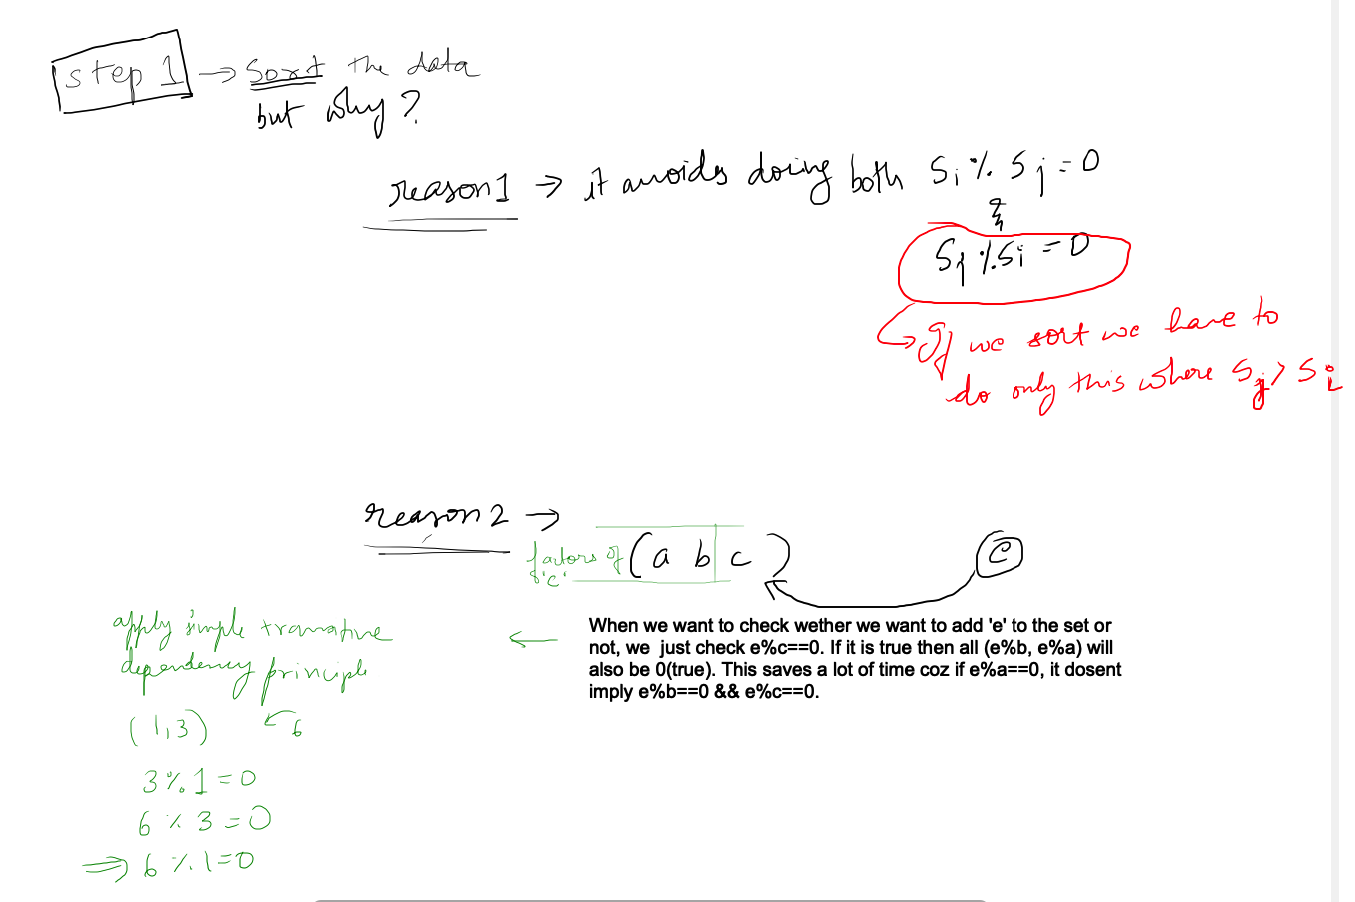 step 1 → Sort the data
but why?
reason 1 → it avoids doing both Si % Sj = 0
&
Sj % Si = 0
If we sort we have to
do only this where Sj > Si
reason 2 →
factors of 'c' (a b c) e
When we want to check wether we want to add 'e' to the set or
not, we just check e%c==0. If it is true then all (e%b, e%a) will
also be 0(true). This saves a lot of time coz if e%a==0, it dosent
imply e%b==0 && e%c==0.
apply simple transative
dependency principle
(1,3) 6
3 % 1 = 0
6 % 3 = 0
⇒ 6 % 1 = 0